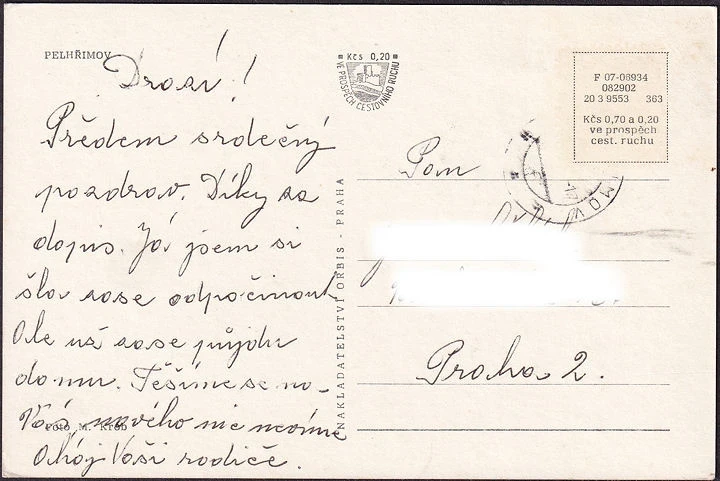 PELHŘIMOV
Drazí!
Předem srdečný
pozdrav. Díky za
dopis. Já jsem si
šla zase odpočinout
Ale už zase půjdu
domu. Těšíme se na-
Vás nového nic nevíme
Ahoj Vaši rodiče.
Foto M. Krob
Kčs 0,20
VE PROSPĚCH CESTOVNÍHO RUCHU
NAKLADATELSTVÍ ORBIS - PRAHA
F 07-06934
082902
20 3 9553 363
Kčs 0,70 a 0,20
ve prospěch
cest. ruchu
MOV
Pan
Praha 2.